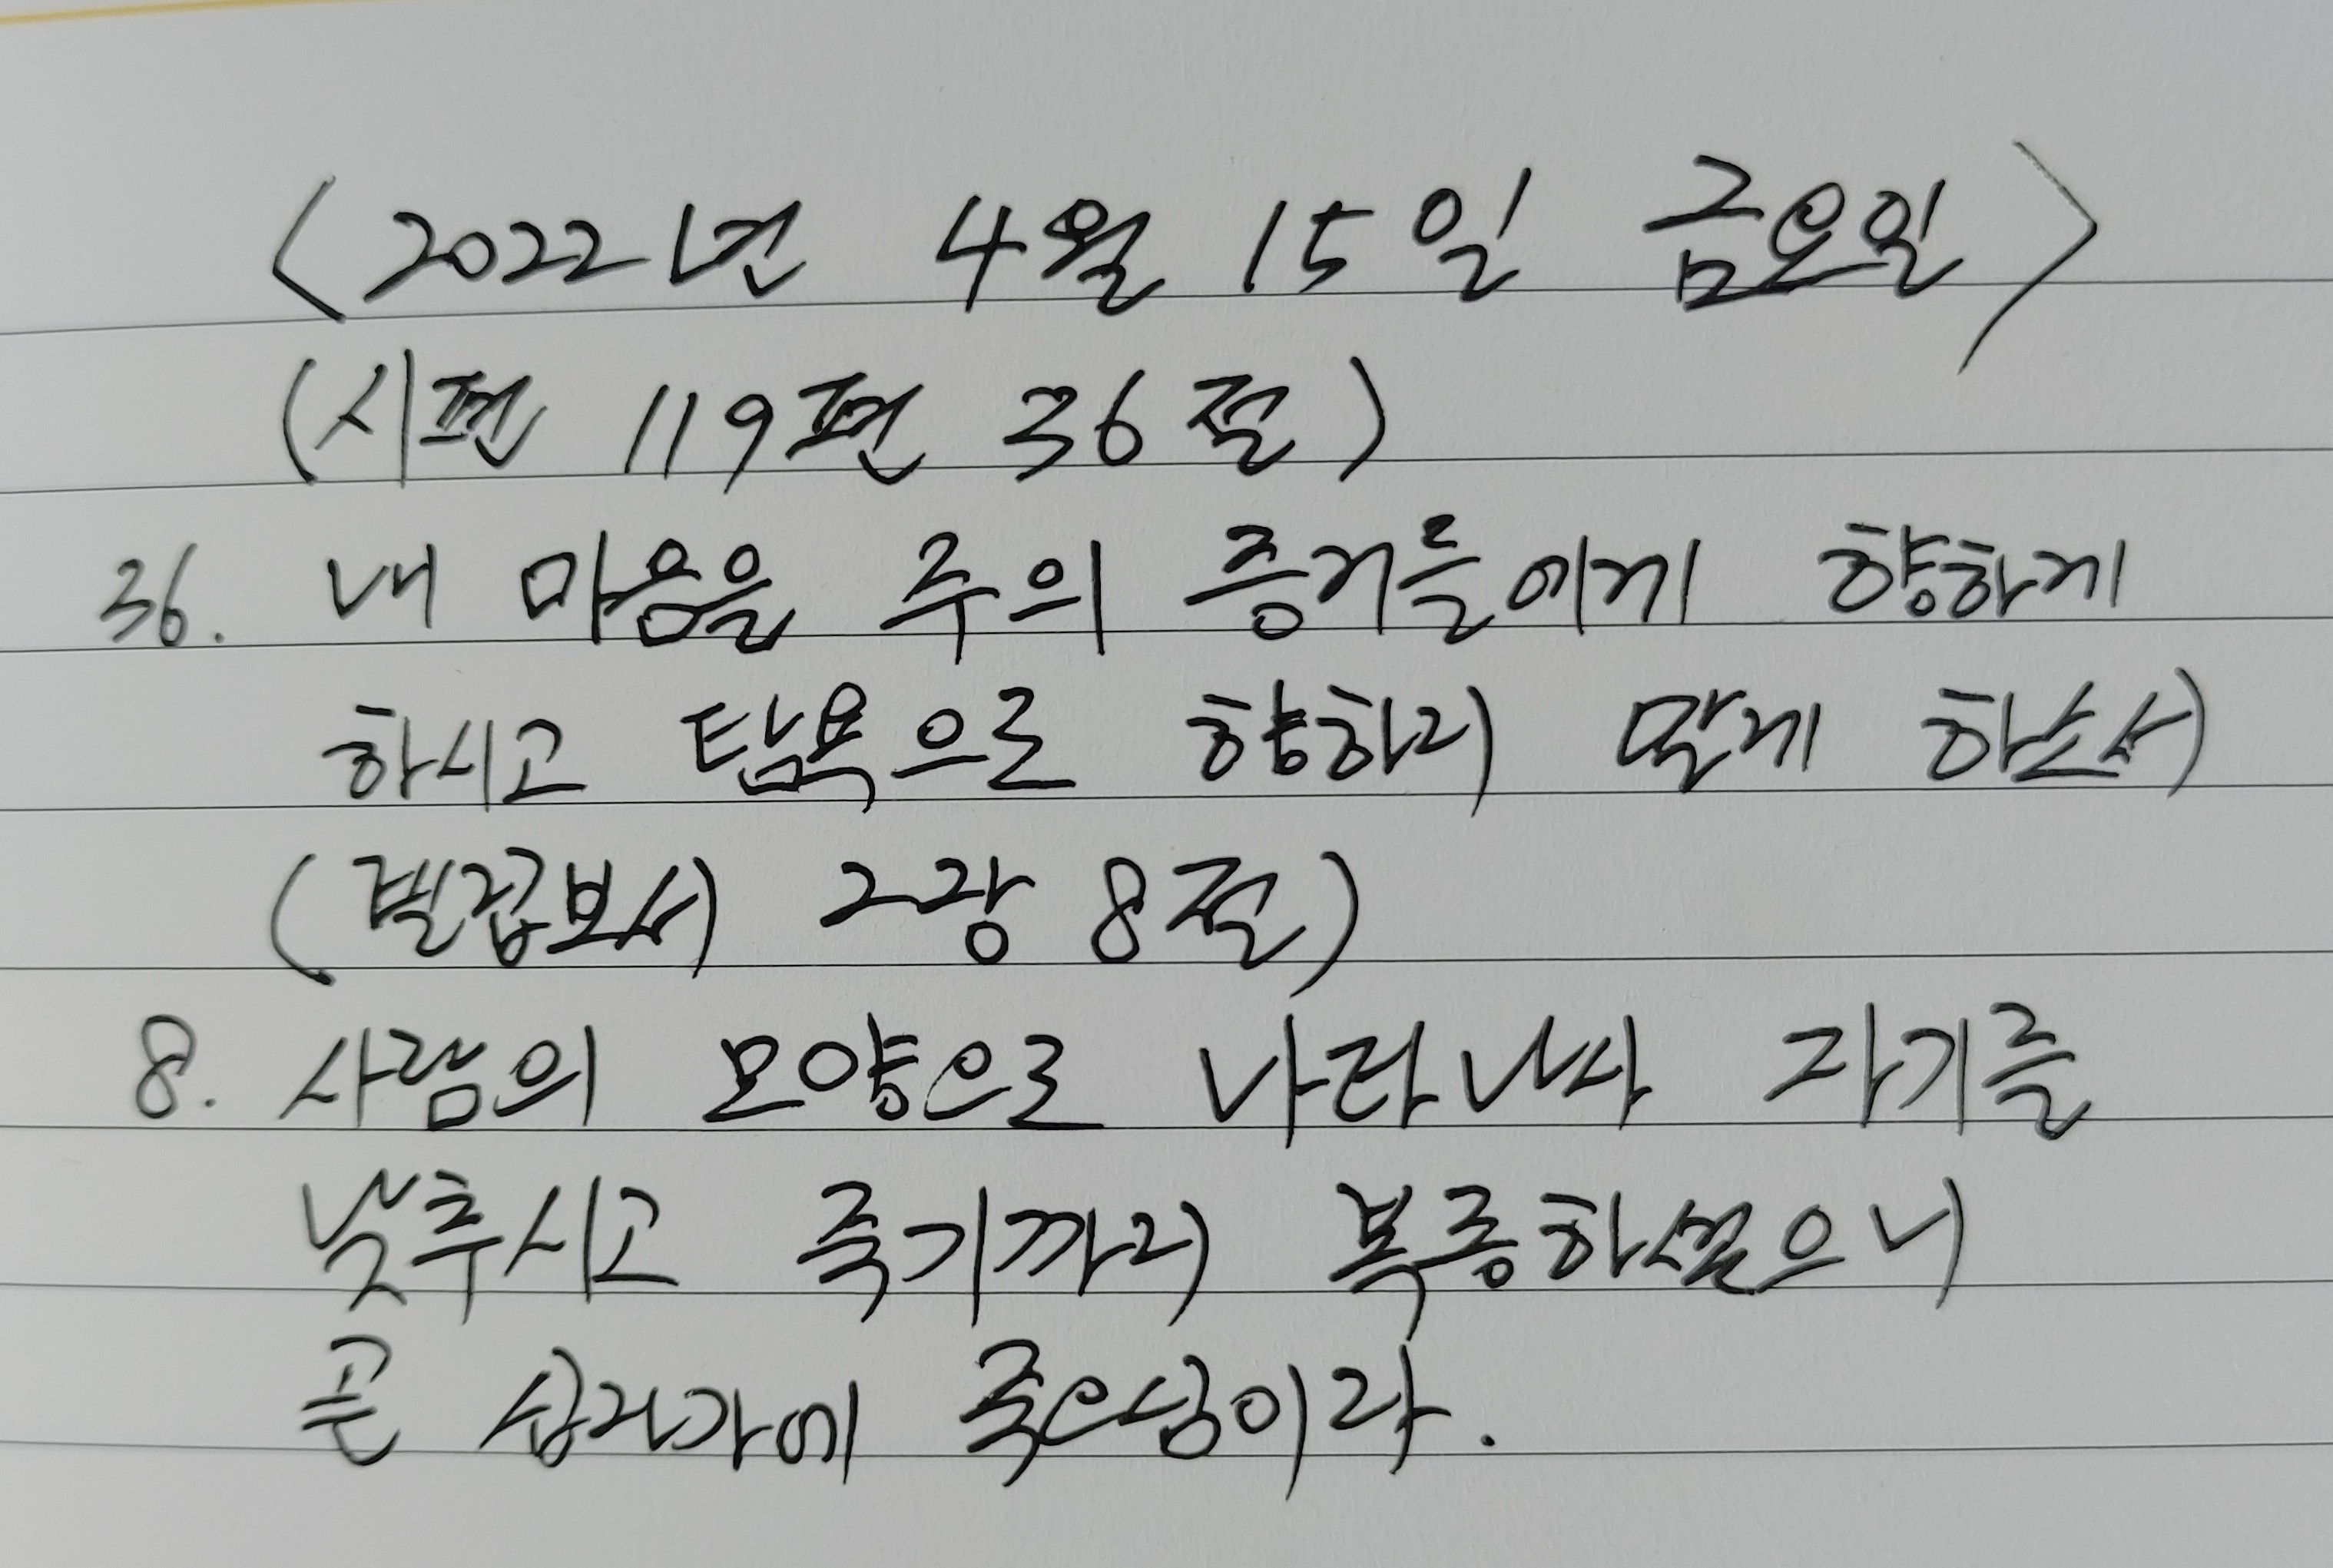 <2022년 4월 15일 금요일>
(시편 119편 36절)
36. 내 마음을 주의 증거들에게 향하게
하시고 탐욕으로 향하지 말게 하소서
(빌립보서 2장 8절)
8. 사람의 모양으로 나타나사 자기를
낮추시고 죽기까지 복종하셨으니
곧 십자가에 죽으심이라.